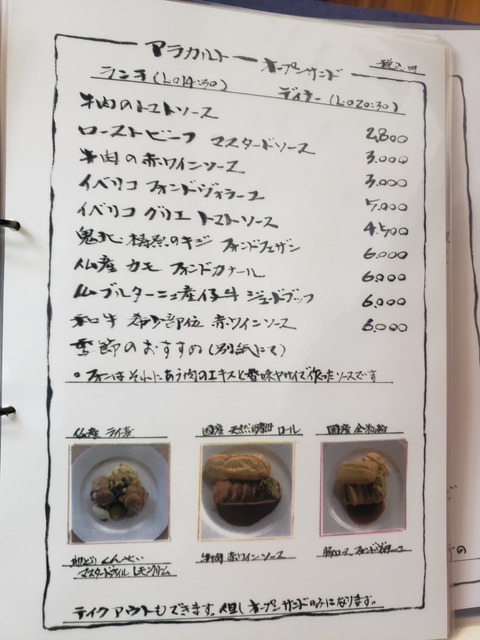 アラカルト オープンサンド 税込 円
ランチ(LO14:30) ディナー(LO20:30)
牛肉のトマトソース 2,800
ローストビーフ マスタードソース 3,000
牛肉の赤ワインソース 3,000
イベリコ フォンドヴォライユ 5,000
イベリコ グリエ トマトソース 4,500
鬼北 梼原のキジ フォンドフェザン 6,000
仏産 カモ フォンドカナール 6,000
仏ブルターニュ産仔牛 ジュドブッフ 6,000
和牛 希少部位 赤ワインソース 6,000
季節のおすすめ(別紙にて)
・フォンはそれぞれにあう肉のエキスと香味ヤサイで作ったソースです
仏産 ライ麦
国産 天然酵母 ロール
国産 全粒粉
くんせい
マスタードオイル レモンクリーム
牛肉 赤ワインソース
豚ロース フォンド
テイクアウトもできます。但しオープンサンドのみになります。
の